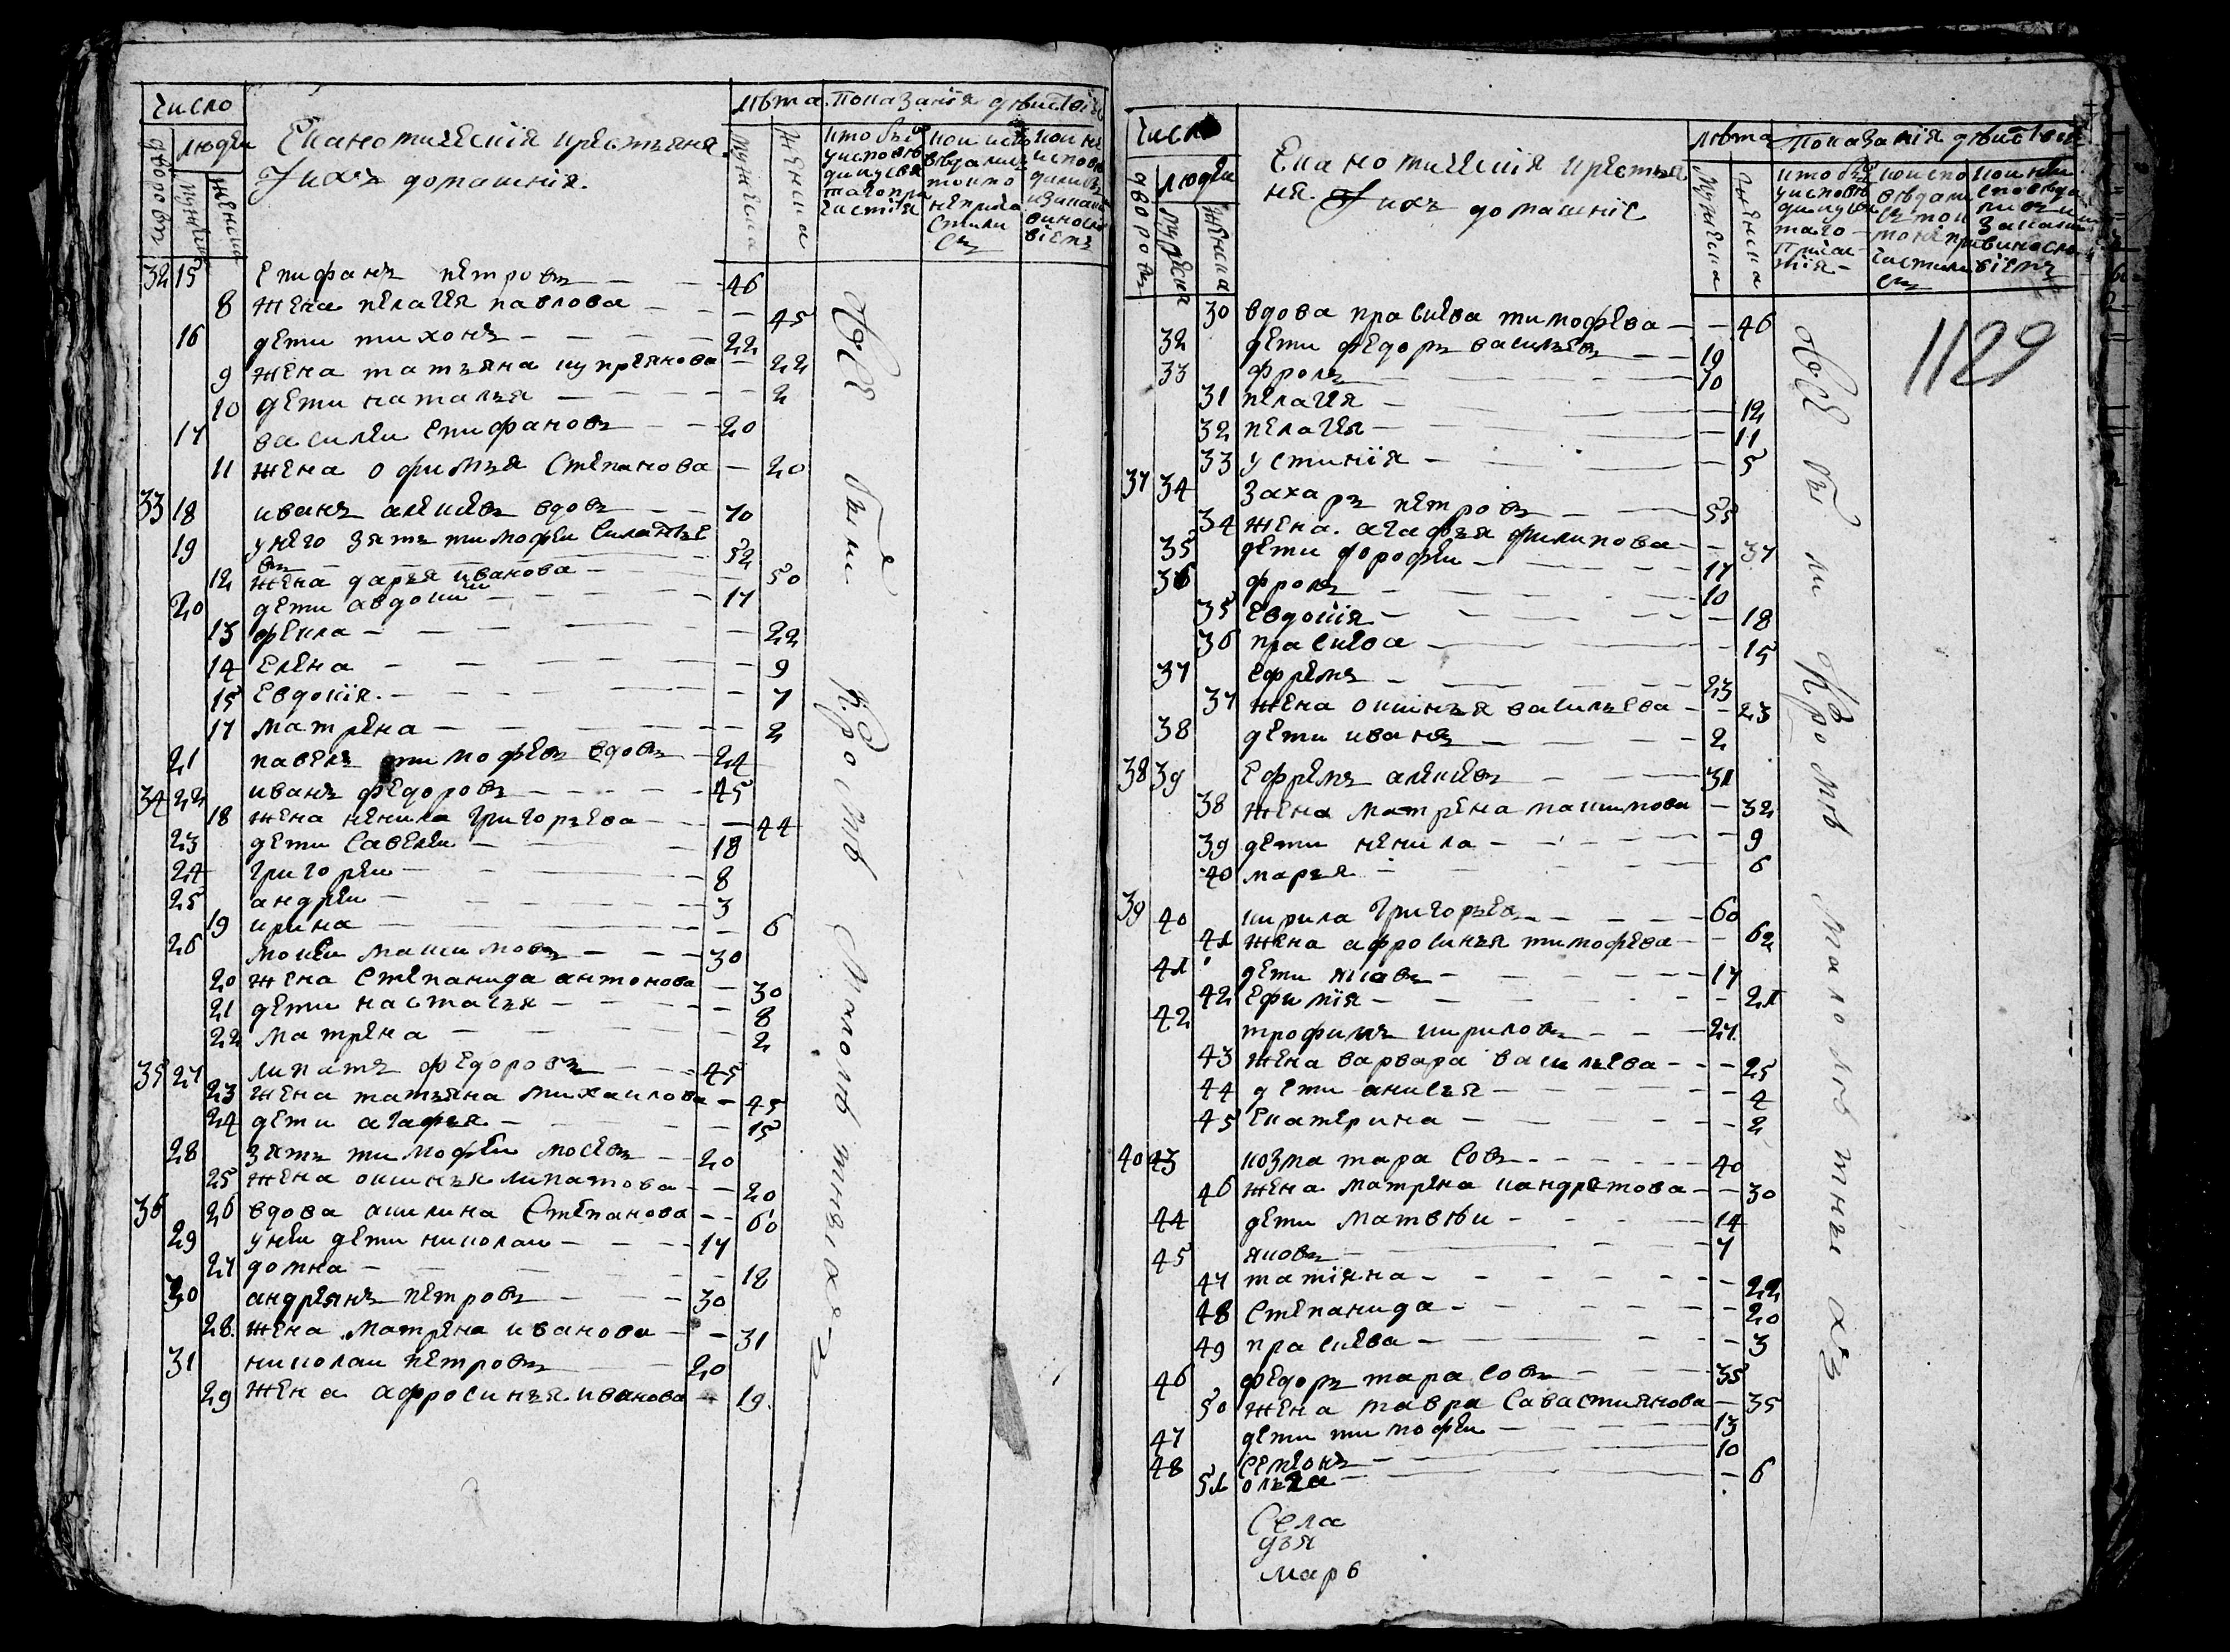 число
людеи
дворовъ
мужеска
женска
Еканомическия крестьяня
И ихъ домашнія.
лѣта
мужеска
женска
показанія дѣиствія
кто былъ у исповѣди и у святаго причастія
кои исповѣдались токмо не причастились
кои не исповѣдались и за каким винословіемъ
32 15 Епифанъ петровъ — 46
8 жена пелагея павлова — 45
16 дети тихонъ — 22
9 жена татьяна купреянова — 22
10 дети наталья — 2
17 василеи епифановъ — 20
11 жена офимья Степанова — 20
33 18 иванъ алексѣевъ вдовъ — 70
19 у него зять тимофеи силантье
въ — 52
12 жена дарья иванова — 50
20 дети авдоким — 17
13 фекла — 22
14 елена — 9
15 Евдокия — 7
17 матрена — 2
21 павелъ тимофеевъ вдовъ — 24
34 22 иванъ федоровъ — 45
18 жена ненила григорьева — 44
23 дети савелеи — 18
24 григореи — 8
25 андреи — 3
19 ирина — 6
26 мокеи макимовъ — 30
20 жена степанида антонова — 30
21 дети настасья — 8
22 матрена — 2
35 27 липатъ федоровъ — 45
23 жена татьяна михаилова — 45
24 дети агафья — 15
28 зять тимофеи мосеевъ — 20
25 жена оксинья липатова — 20
36 26 вдова акилина Степанова — 60
29 у неи дети николаи — 17
27 домна — 18
30 андреянъ петровъ — 30
28 жена матрена иванова — 31
31 николаи петровъ — 20
29 жена афросинья иванова — 19
Все были Кромѣ малолѣтныхъ
число
дворовъ
людеи
мужеска
женска
Економическия крестья
ня. И ихъ домашніе
лѣта
мужеска
женска
Показанія дѣиствія
1129
30 вдова прасковья тимофеева — 46
32 дети федоръ васильевъ — 19
33 фролъ — 10
31 пелагея — 12
32 пелагея — 11
33 устиния — 5
37 34 Захаръ петровъ — 55
34 жена агафья филипова — 37
35 дети дорофеи — 17
36 фролъ — 10
35 Евдокия — 18
36 праскева — 15
37 ефремъ — 23
37 жена оксинья васильева — 23
38 дети иванъ — 2
38 39 Ефремъ алексѣевъ — 31
38 жена матрена макимова — 32
39 дети ненила — 9
40 марья — 6
39 40 кирила григорьевъ — 60
41 жена афросинья тимофеева — 62
41 дети яковъ — 17
42 Ефимія — 21
42 трофимъ кириловъ — 27
43 жена варвара васильева — 25
44 дети анисья — 4
45 Екатерина — 2
40 43 козма тарасовъ — 40
46 жена матрена кандратова — 30
44 дети матвѣи — 14
45 яковъ — 7
47 татіяна — 22
48 Степанида — 20
49 праскева — 3
46 федоръ тарасовъ — 35
50 жена мавра савастиянова — 35
47 дети тимофеи — 13
48 семионъ — 10
51 ольга — 6
Все были Кромѣ малолѣтныхъ
Села
дья
марь